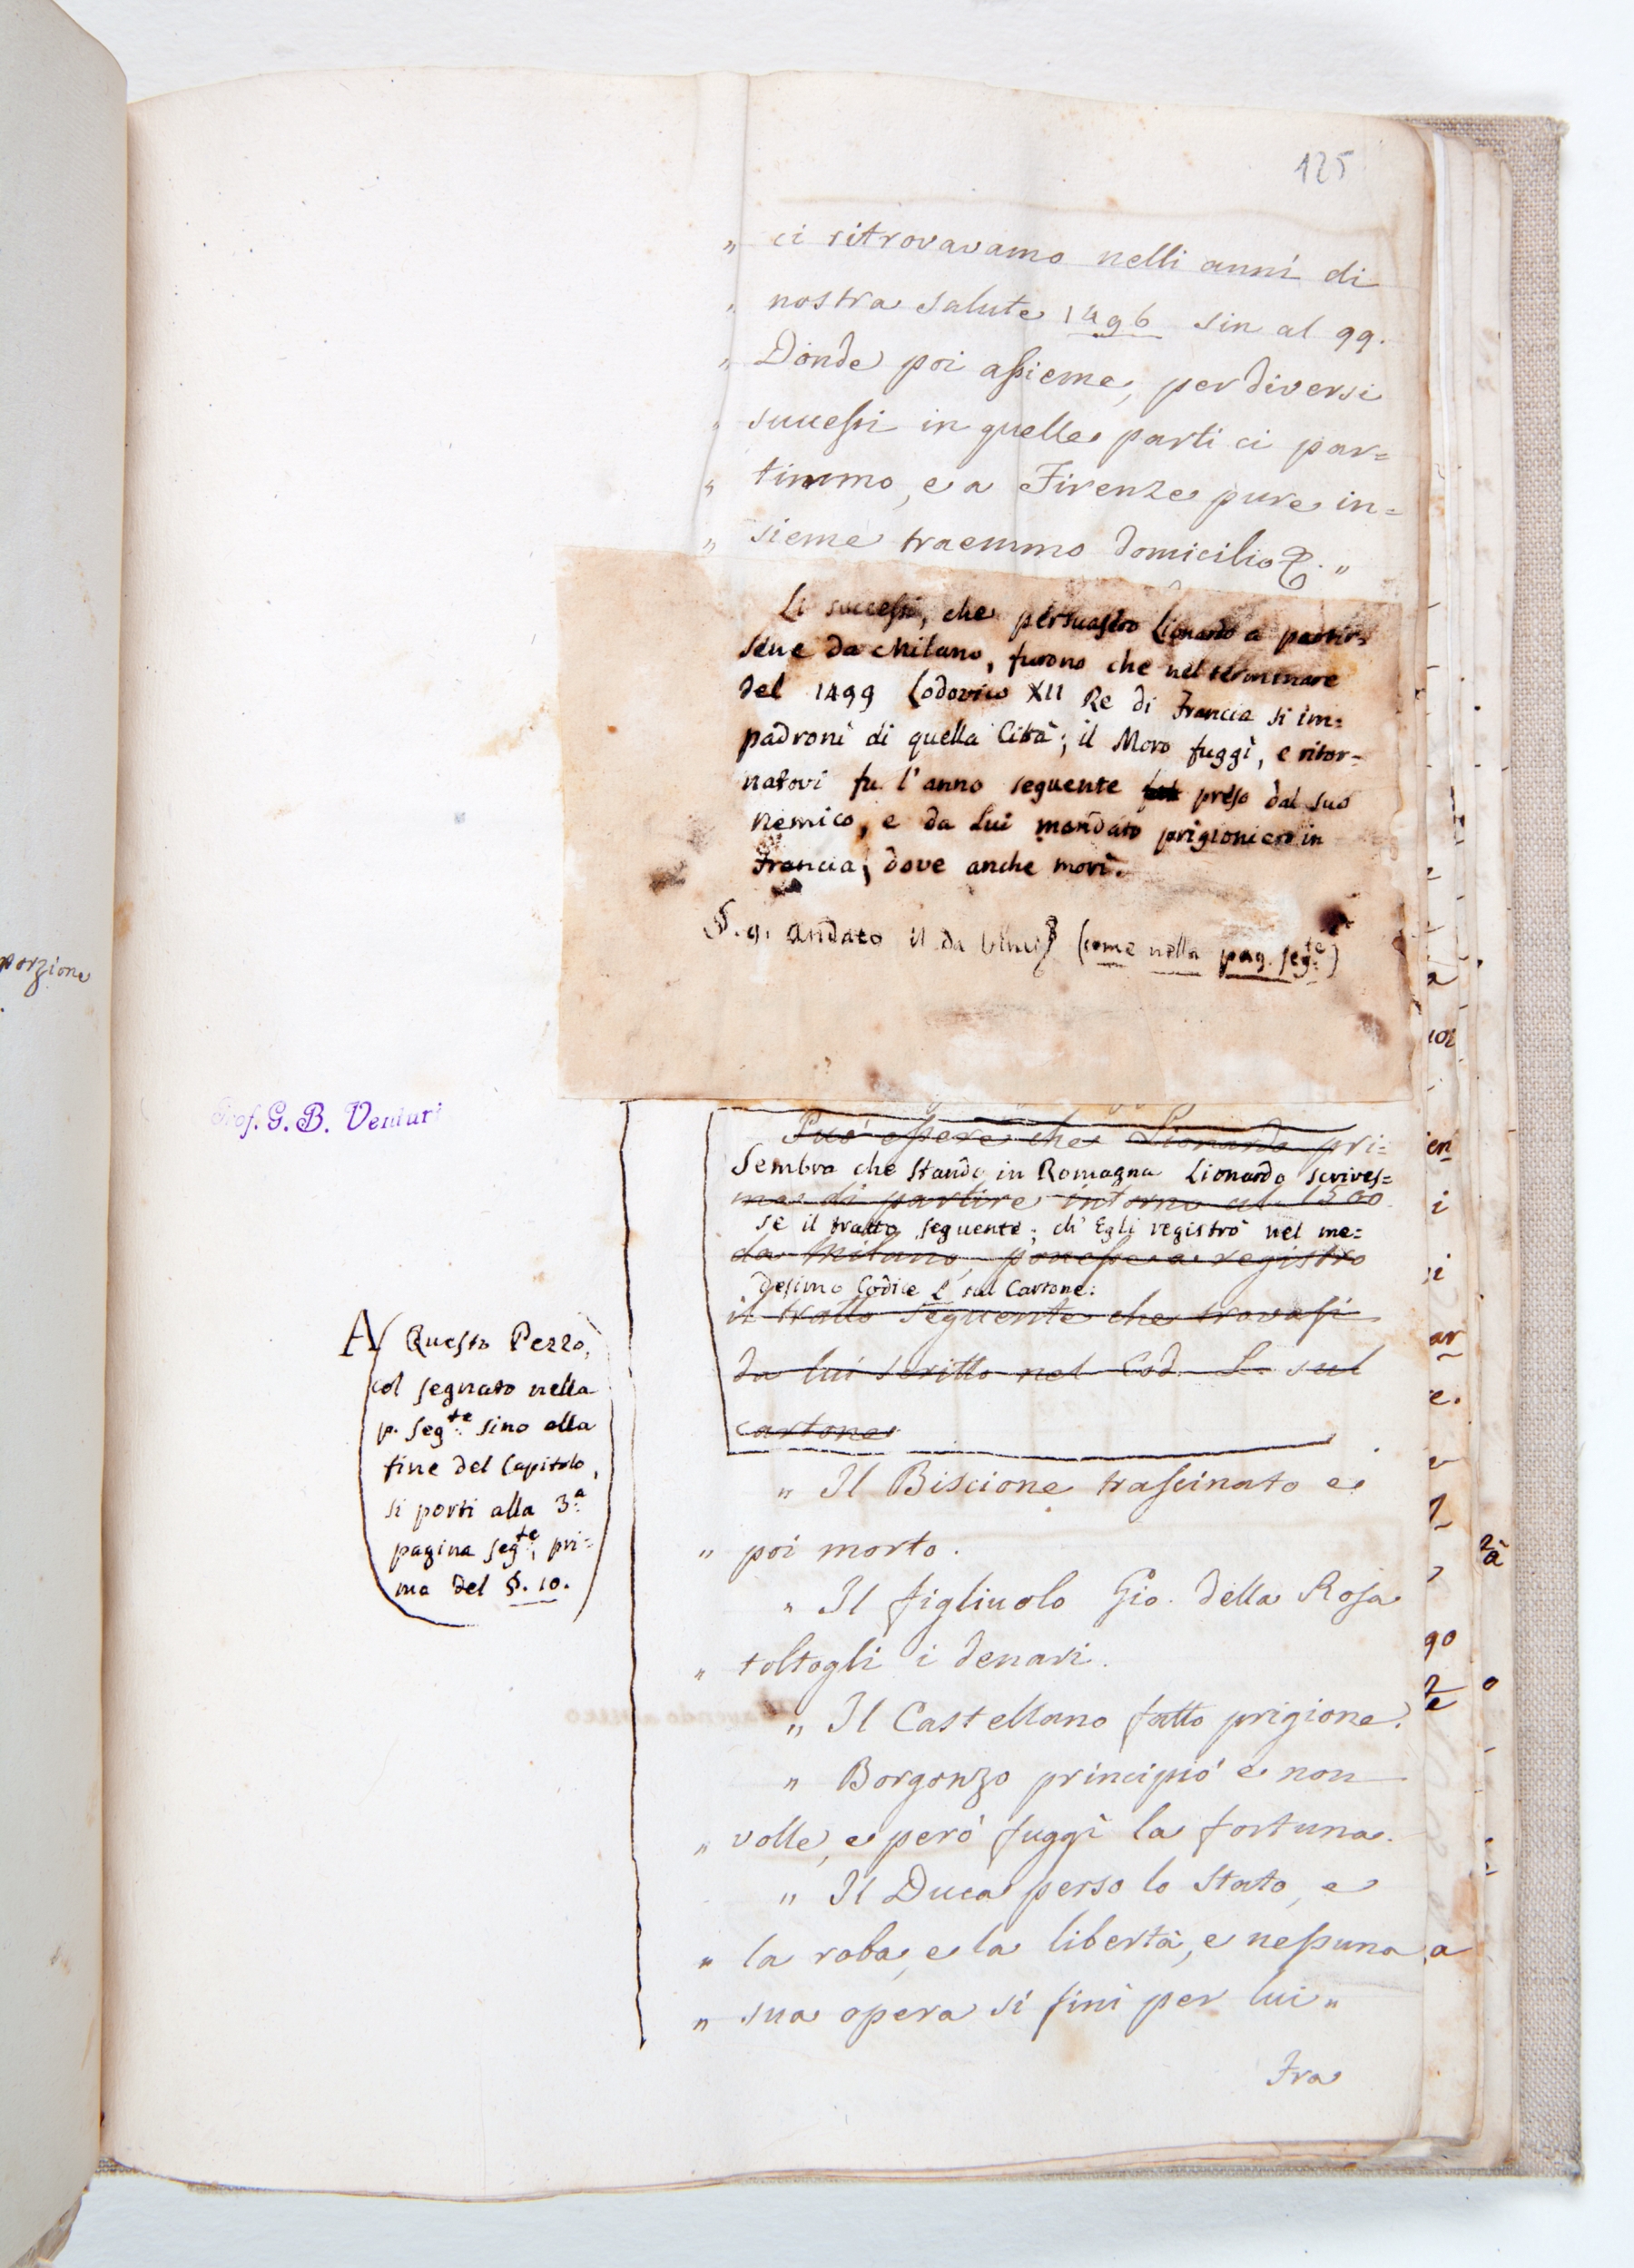 125
„ ci ritrovavamo nelli anni di
„ nostra salute 1496 sin al 99.
„ Donde poi assieme, per diversi
„ successi in quelle parti ci par=
„ timmo, e a Firenze pure in=
„ sieme traemmo domicilio &. „
Li successi, che persuasero Lionardo a partir=
sene da Milano, furono che nel terminare
del 1499 Lodovico XII Re di Francia si im=
padronì di quella Città; il Moro fuggì, e ritor=
natovi fu l'anno seguente preso dal suo
nemico, e da lui mandato prigioniero in
Francia, dove anche morì.
§. 9. Andato il da Vinci & (come nella pag. seg.te)
Può essere che Lionardo pri=
Sembra che stando in Romagna Lionardo scrives=
ma di partire intorno al 1500
se il tratto seguente; ch'Egli registrò nel me=
da Milano, ponesse a registro
desimo Codice L sul Cartone:
il tratto seguente che trovasi
da lui scritto nel Cod. L. sul
cartone
„ Il Biscione trascinato e
„ poi morto.
„ Il figliuolo Gio. della Rosa
„ toltogli i denari.
„ Il Castellano fatto prigione.
„ Borgonzo principiò e non
„ volle, e però fuggì la fortuna.
„ Il Duca perso lo Stato, e
„ la roba, e la libertà, e nessuna
„ sua opera si finì per lui „
Fra
A/ Questo Pezzo,
col segnato nella
p. seg.te sino alla
fine del Capitolo,
si porti alla 3.a
pagina seg.te, pri=
ma del §. 10.
Prof. G. B. Venturi
porzione